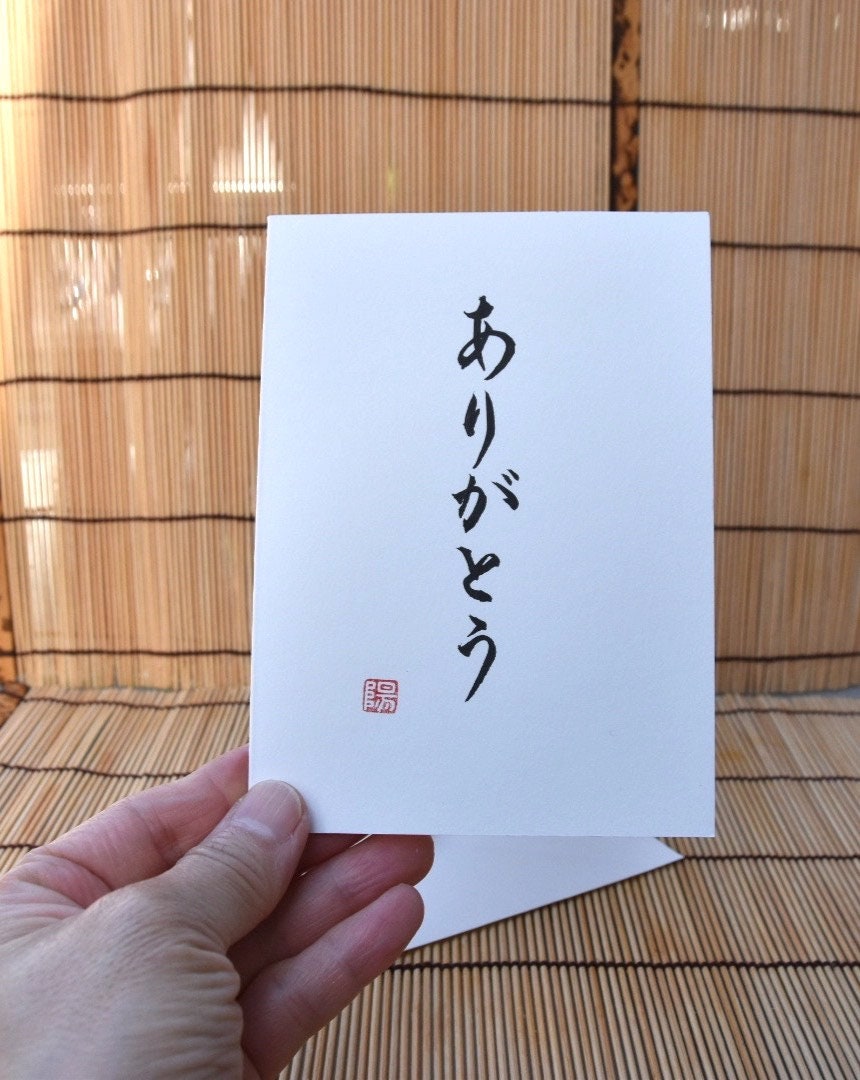 ありがとう
陽